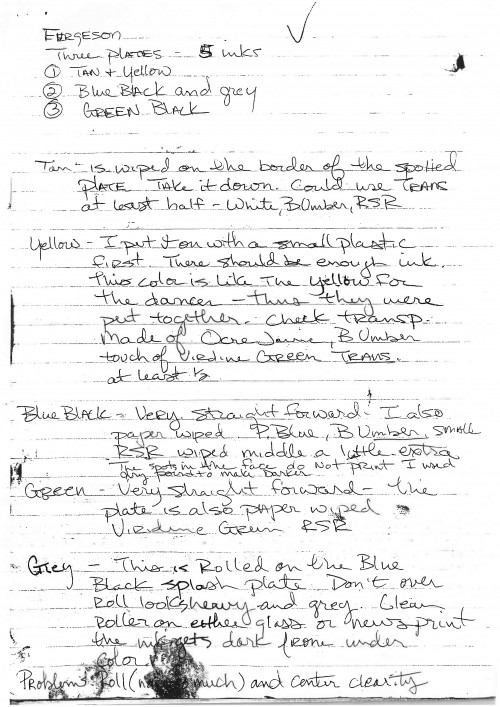 Fergeson
Three plates - 5 inks
① Tan + Yellow
② Blue Black and grey
③ GREEN Black
Tan - is wiped on the border of the spotted
plate Take it down. Could use Trans
at least half - White, B Umber, RSR
Yellow - I put it on with a small plastic
first. There should be enough ink.
This color is like The yellow for
the dancer - thus they were
put together. Check transp.
Made of Ocre Jaune, B Umber
touch of Viridine Green Trans.
at least ½
Blue Black = Very straight forward - I also
paper wiped P. Blue, B Umber, small
RSR wiped middle a little extra
The spots in the face do not print I used
dry to make darker
GREEN - Very straight forward - the
plate is also paper wiped
Viridine Green RSR
Grey - This is Rolled on the Blue
Black splash plate Don't over
Roll looks heavy and grey. Clean
Roller on either glass or news print
the ink gets dark from under
color.
Problems: Roll (not much) and center clearity